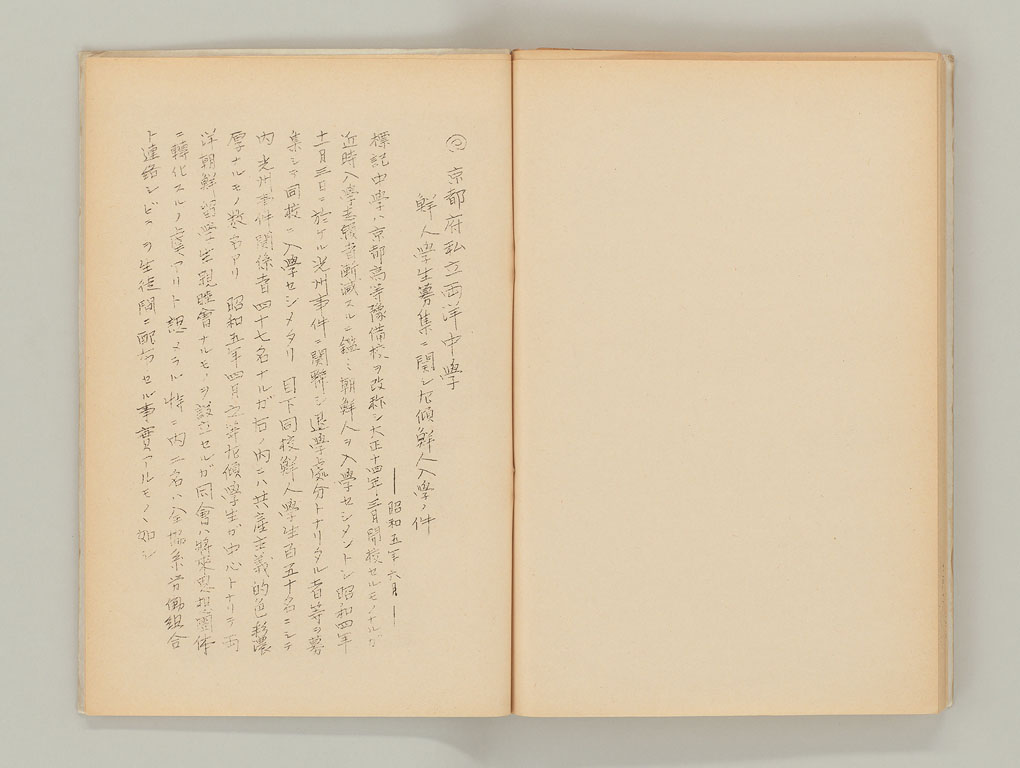 京都府私立両洋中學
鮮人學生募集ニ関シ左傾鮮人入學ノ件
―昭和五年六月―
標記中學ハ京都高等豫備校ヲ改称シ大正十四年三月開校セルモノナルガ
近時入學志願者漸減スルニ鑑ミ朝鮮人ヲ入學セシメントシ昭和四年
十一月三日ニ於ケル光州事件ニ関聯シ退學處分トナリタル者等ヲ募
集シテ同校ニ入學セシメタリ 目下同校鮮人學生百五十名ニシテ
内光州事件関係者四十七名ナルガ右ノ内ニハ共産主義的色彩濃
厚ナルモノ数名アリ 昭和五年四月 左傾學生ガ中心トナリテ両
洋朝鮮留學生親睦會ナルモノヲ設立セルガ同會ハ將來思想團体
ニ轉化スルノ虞アリト認メラル 特ニ内二名ハ全協系労働組合
ト連絡シビラヲ生徒間ニ配布セル事實アルモノノ如シ